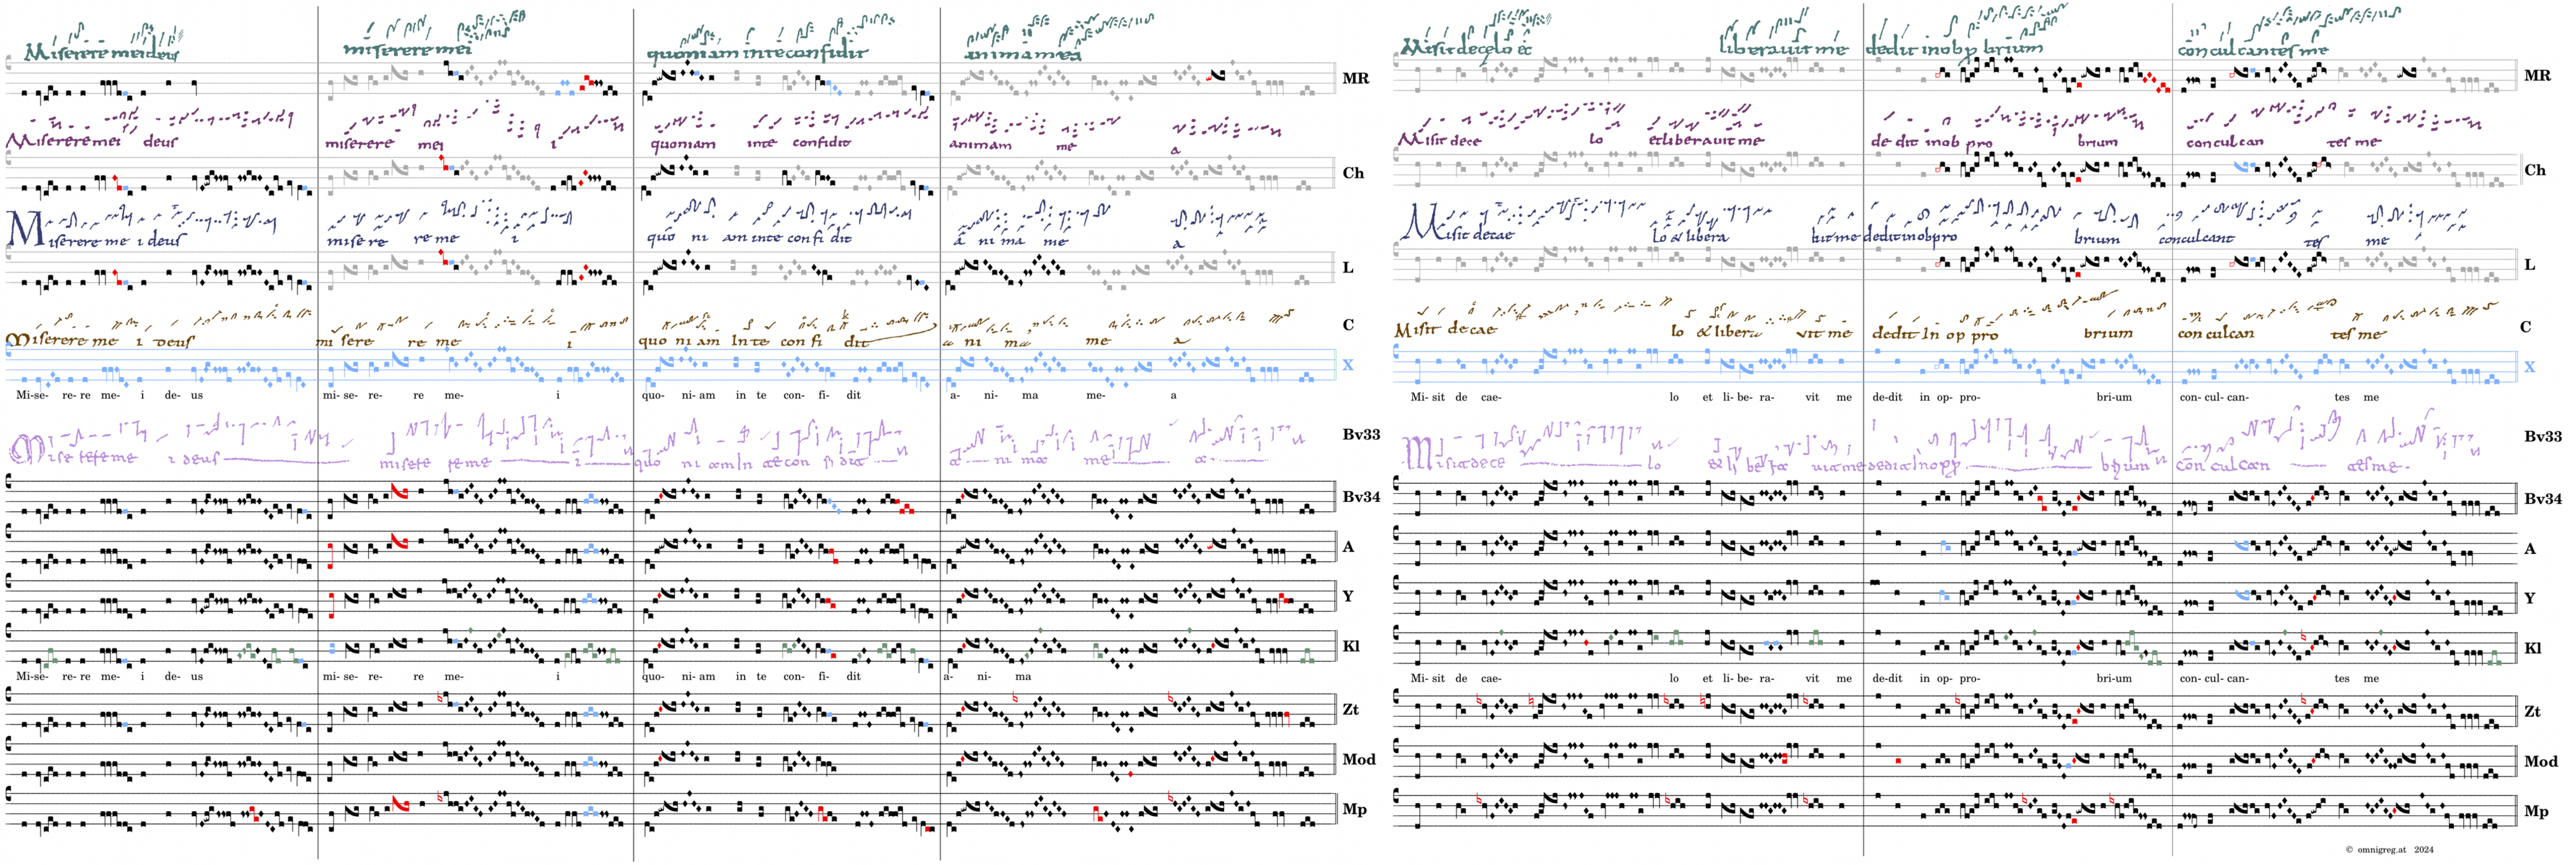 Miserere mei deus miserere mei quoniam in te confidit anima mea
MR
Miserere mei deus miserere mei i quoniam inte confidit animam me a
Ch
Miserere me i deus misere re me i quo ni am inte confi dit a ni ma me a
L
Miserere me i deus mi sere re me i quo ni am In te con fi dit a ni ma me a
C
X
Mi-se- re-re me- i de- us mi- se- re- re me- i quo- ni- am in te con- fi- dit a- ni- ma me- a
Bv33
Bv34
A
Y
Kl
Mi-se- re-re me- i de- us mi- se- re- re me- i quo- ni- am in te con- fi- dit a- ni- ma
Zt
Mod
Mp
Misit de celo et liberauit me dedit in obp brium con culcantes me
MR
Misit dece lo etliberauit me de dit inob pro brium con culcan tes me
Ch
Misit decae lo & libera uit me dedit inobpro brium conculcant tes me
L
Misit de cae lo & libera vit me dedit In op pro brium con culcan tes me
C
X
Mi- sit de cae- lo et li- be- ra- vit me de-dit in op- pro- bri-um con- cul- can- tes me
Bv33
Bv34
A
Y
Kl
Mi- sit de cae- lo et li- be- ra- vit me de-dit in op- pro- bri-um con- cul- can- tes me
Zt
Mod
Mp
© omnigreg.at 2024